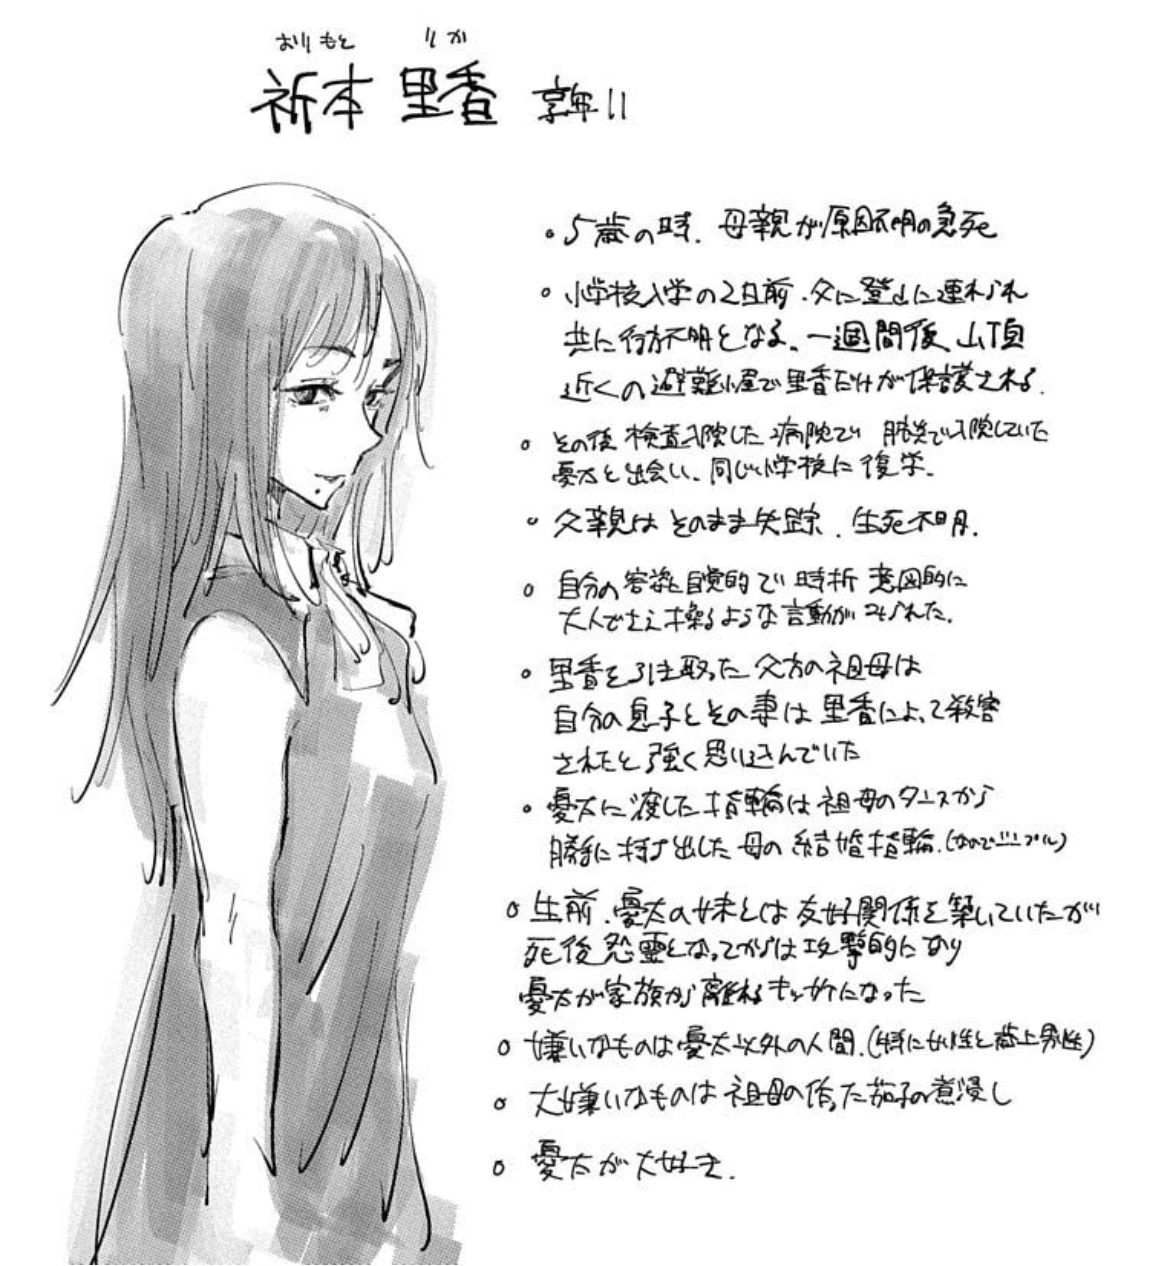 おりもと りか
祈本 里香 享年11
。5歳の時、母親が原因不明の急死
。小学校入学の2日前、父に登山に連れられ
共に行方不明となる、一週間後、山頂
近くの避難小屋で里香だけが保護される。
。その後 検査入院した病院で 肺炎で入院していた
憂太と出会い、同じ小学校に復学。
。父親はそのまま失踪、生死不明。
。自分の容姿に自覚的で 時折 意図的に
大人でさえ操るような言動がみられた。
。里香を引き取った 父方の祖母は
自分の息子とその妻は里香によって殺害
されたと強く思い込んでいた
。憂太に渡した指輪は祖母のタンスから
勝手に持ち出した 母の 結婚指輪。(なのでシンプル)
。生前、憂太の妹とは 友好関係を築いていたが
死後 怨霊となってからは攻撃的になり
憂太が家族から離れるキッカケになった
。嫌いなものは憂太以外の人間。(特に女性と歳上男性)
。大嫌いなものは祖母の作った茄子の煮浸し
。憂太が大好き。